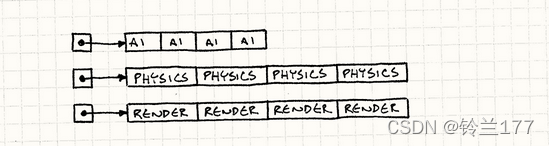 AI AI AI AI
PHYSICS PHYSICS PHYSICS PHYSICS
RENDER RENDER RENDER RENDER
CSDN @铃兰177